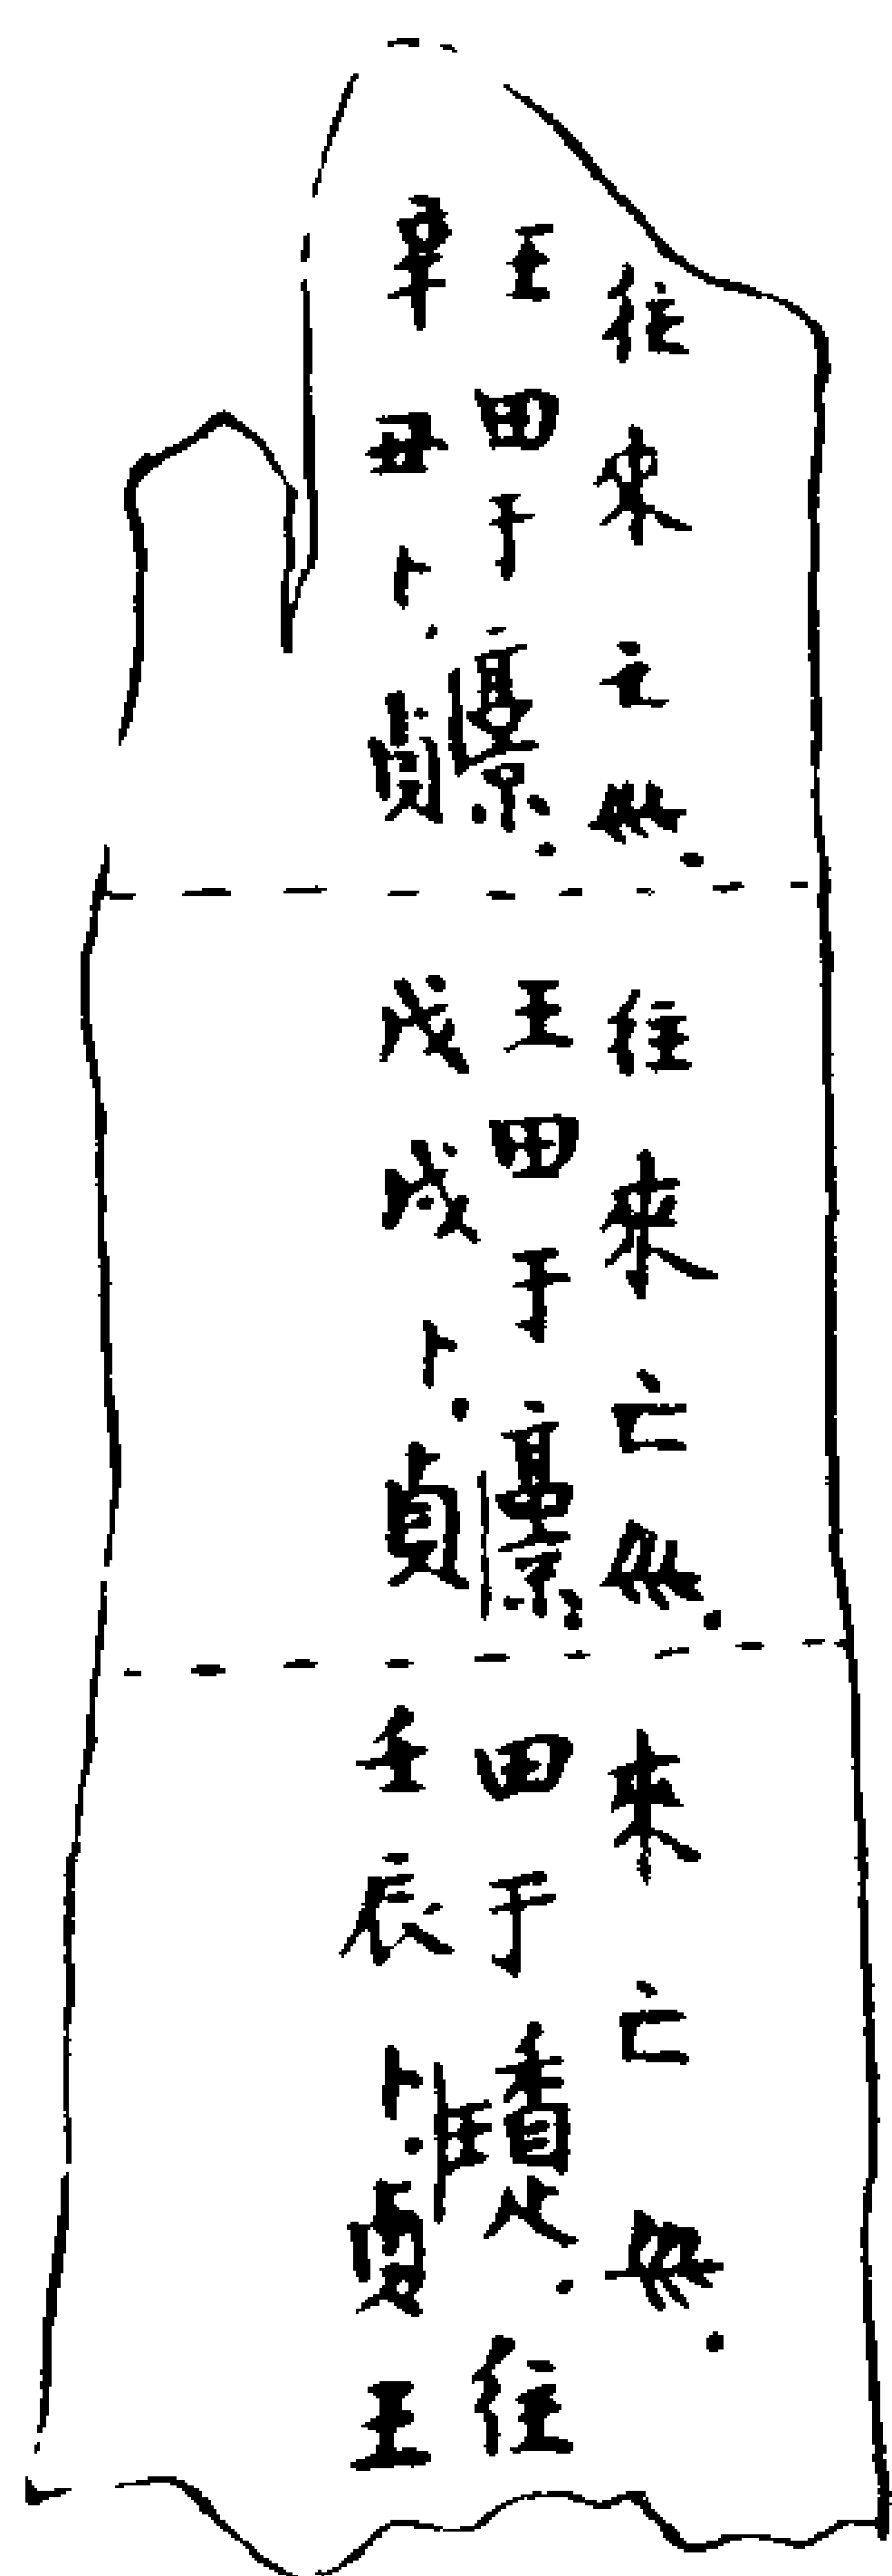 辛丑卜,貞
王田于
往來亡𡿧.
戊戌卜,貞
王田于
往來亡𡿧.
壬辰卜,貞王
田于 往
來亡𡿧.